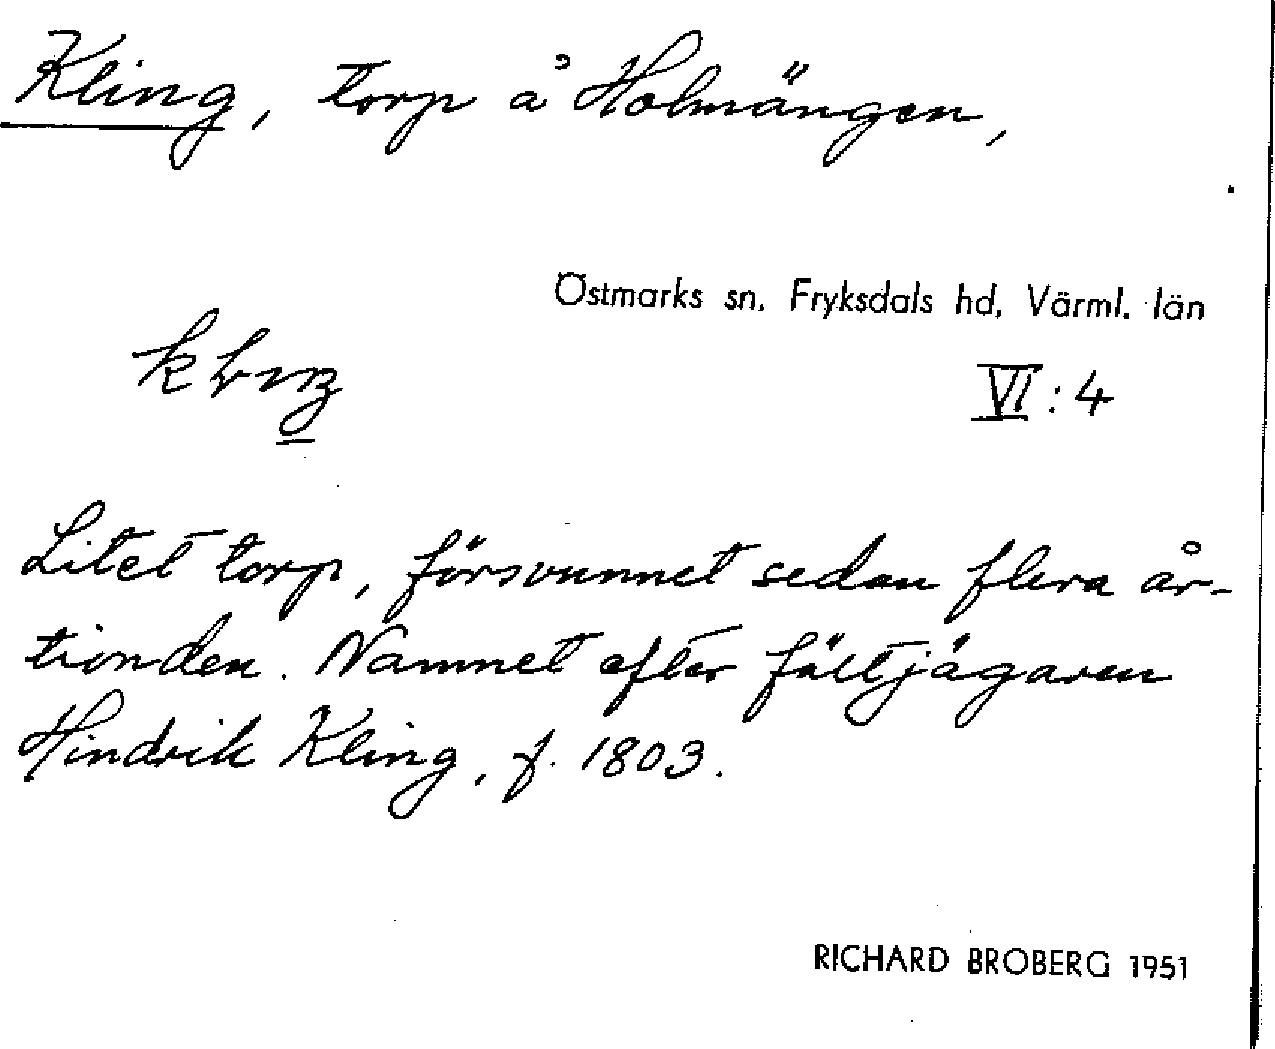 Kling, torp å Holmängen,
Östmarks sn. Fryksdals hd, Värml. län
VI:4
Litet torp, försvunnet sedan flera år-
tionden. Namnet efter fältjägaren
Hindrik Kling, f. 1803.
RICHARD BROBERG 1951